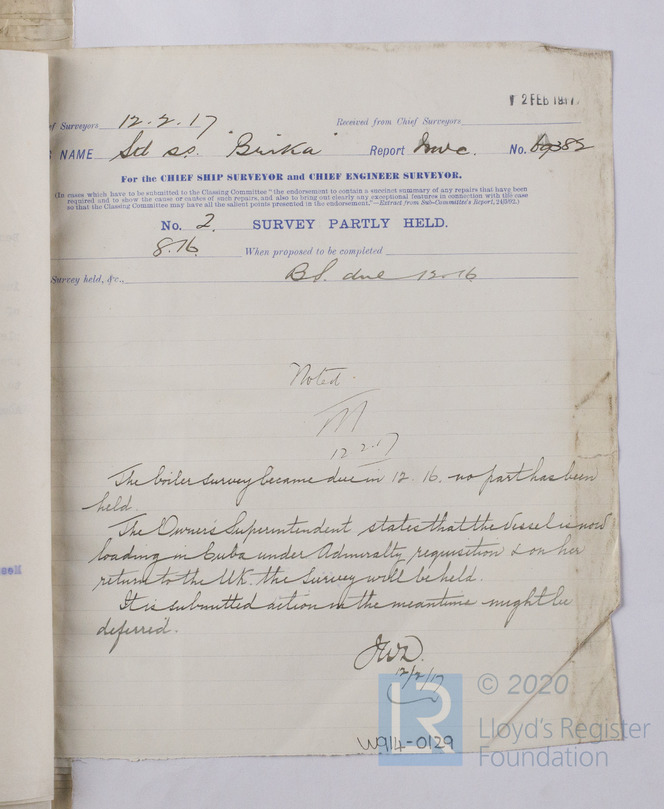 12 FEB 1917
ef Surveyors 12.2.17 Received from Chief Surveyors
NAME Scl ss. "Birka" Report Nwc. No. 69382
For the CHIEF SHIP SURVEYOR and CHIEF ENGINEER SURVEYOR.
(In cases which have to be submitted to the Classing Committee "the endorsement to contain a succinct summary of any repairs that have been
required and to show the cause or causes of such repairs, and also to bring out clearly any exceptional features in connection with this case
so that the Classing Committee may have all the salient points presented in the endorsement."—Extract from Sub-Committee's Report, 24/3/02.)
No. 2. SURVEY PARTLY HELD.
8.16 When proposed to be completed
Survey held, &c., BS. due 12.16
Noted.
12.2.17
The boiler survey became due in 12.16. no part has been
held.
The Owner's Superintendent states that the Vessel is now
loading in Cuba under Admiralty requisition & on her
return to the UK. the Survey will be held.
It is submitted action in the meantime might be
deferred.
12/2/17
W914-0129
LR
© 2020
Lloyd's Register
Foundation